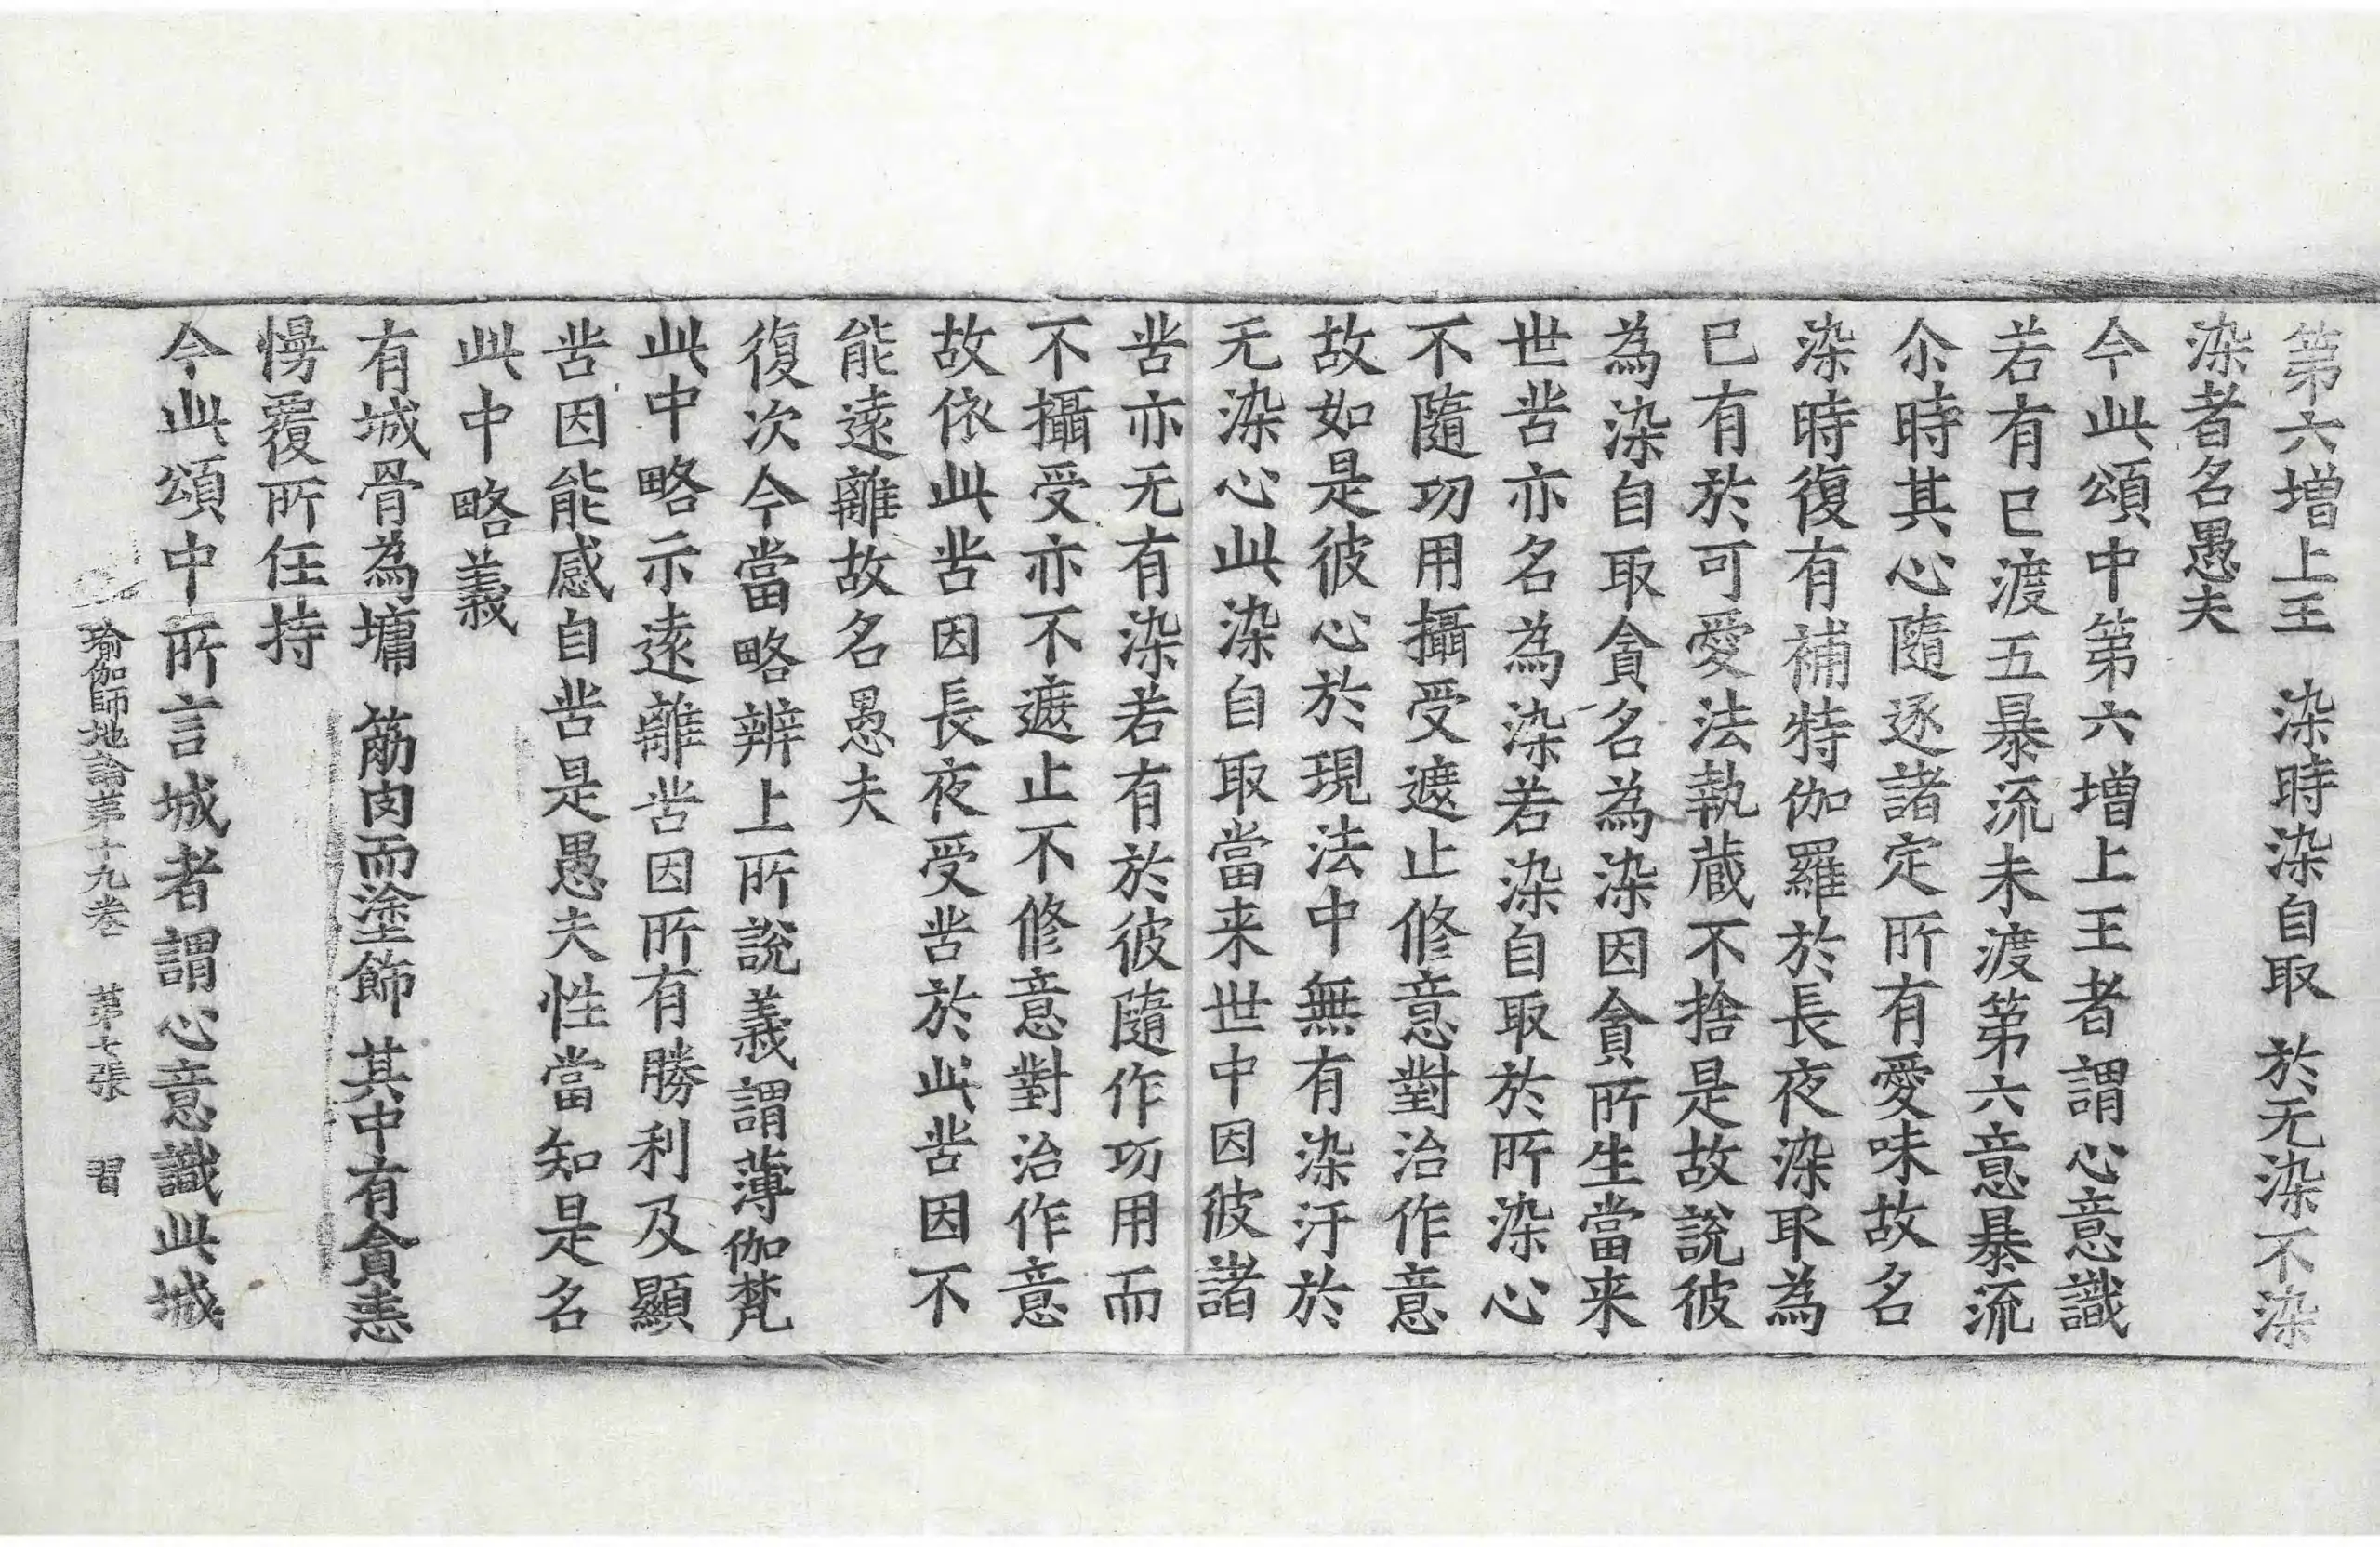 第六增上王　染時染自取　於无染不染
染者名愚夫
今此頌中第六增上王者謂心意識
若有已渡五暴流未渡第六意暴流
尒時其心隨逐諸定所有愛味故名
染時復有補特伽羅於長夜染取為
已有於可愛法執藏不捨是故說彼
為染自取貪名為染因貪所生當来
世苦亦名為染若染自取於所染心
不隨功用攝受遮止修意對治作意
故如是彼心於現法中無有染汙於
无染心此染自取當来世中因彼諸
苦亦无有染若有於彼隨作功用而
不攝受亦不遮止不修意對治作意
故依此苦因長夜受苦於此苦因不
能遠離故名愚夫
復次今當略辨上所說義謂薄伽梵
此中略示遠離苦因所有勝利及顯
苦因能感自苦是愚夫性當知是名
此中略義
有城骨為墉　筋肉而塗飾　其中有貪恚
慢覆所任持
今此頌中所言城者謂心意識此城
瑜伽師地論第十九卷　第七張　習